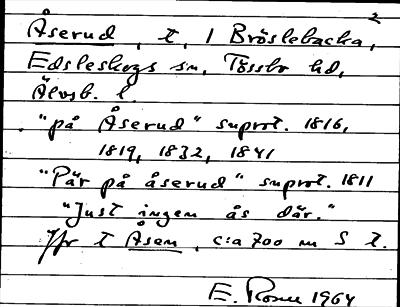 2
Åserud, t, i Bröslebacka,
Edsleskogs sn, Tössbo hd,
Älvsb. l.
"på Åserud" suprot. 1816,
1819, 1832, 1841
"Pär på åserud" suprot. 1811
"Just ingen ås där."
Jfr t Åsen, c:a 700 m S t.
E. 1964